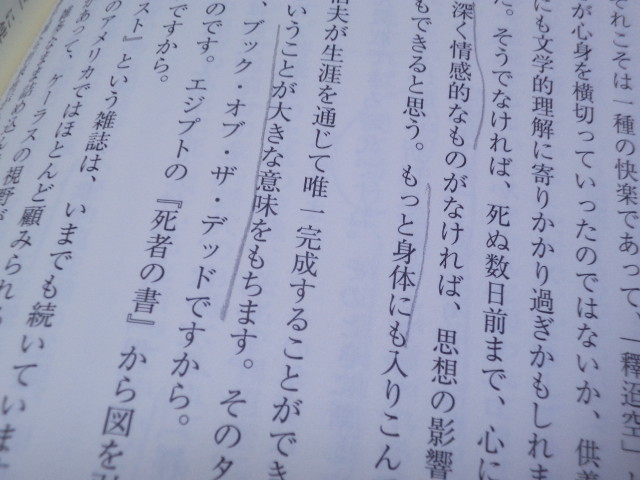 それこそは一種の快楽であって、「釋迢空」と
が心身を横切っていったのではないか、供養
にも文学的理解に寄りかかり過ぎかもしれま
た。そうでなければ、死ぬ数日前まで、心に
深く情感的なものがなければ、思想の影響
もできると思う。もっと身体にも入りこん
信夫が生涯を通じて唯一完成することができ
いうことが大きな意味をもちます。そのタ
、ブック・オブ・ザ・デッドですから。
のです。エジプトの『死者の書』から図を
ですから。
スト』という雑誌は、いまでも続いています
のアメリカではほとんど顧みられる
があって、ケーラスの視野が